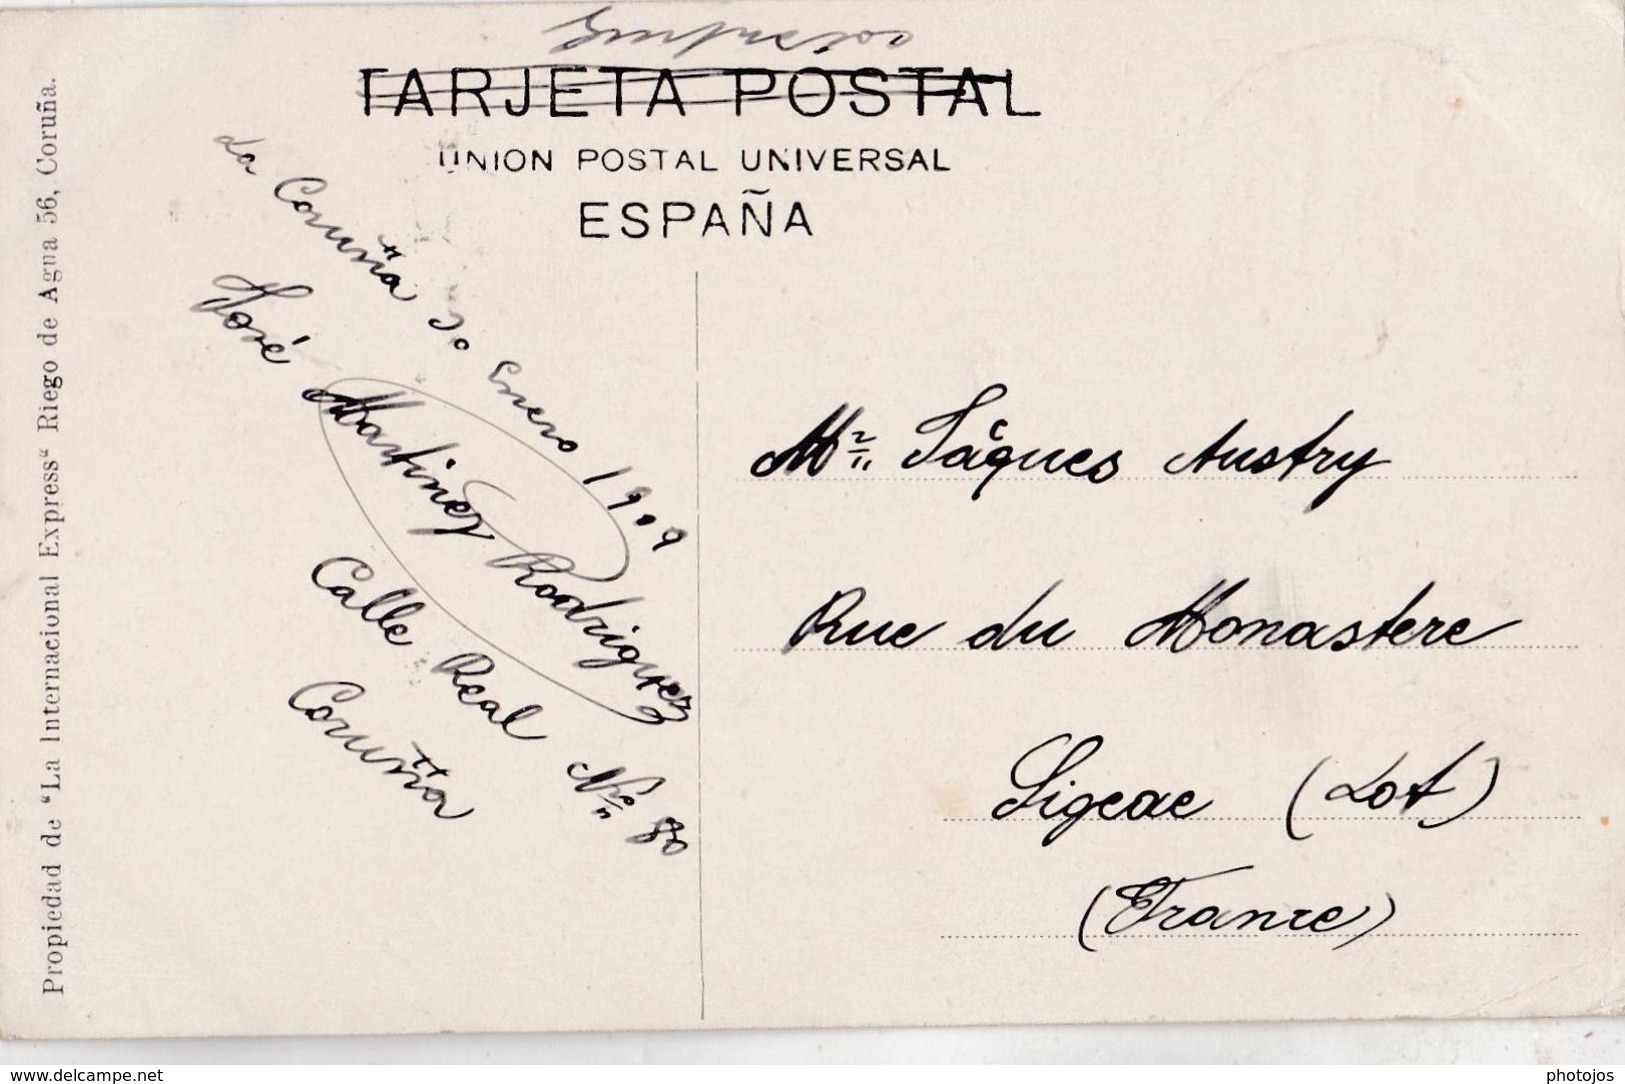 Impresos
TARJETA POSTAL
UNION POSTAL UNIVERSAL
ESPAÑA
La Coruña 30 Enero 1909
José Martinez Rodriguez
Calle Real Nº 80
Coruña
Mr. Jáques Austry
Rue du Monastere
Figeac (Lot)
(France)
Propiedad de “La Internacional Express“ Riego de Agua 56, Coruña.
www.delcampe.net
photojos